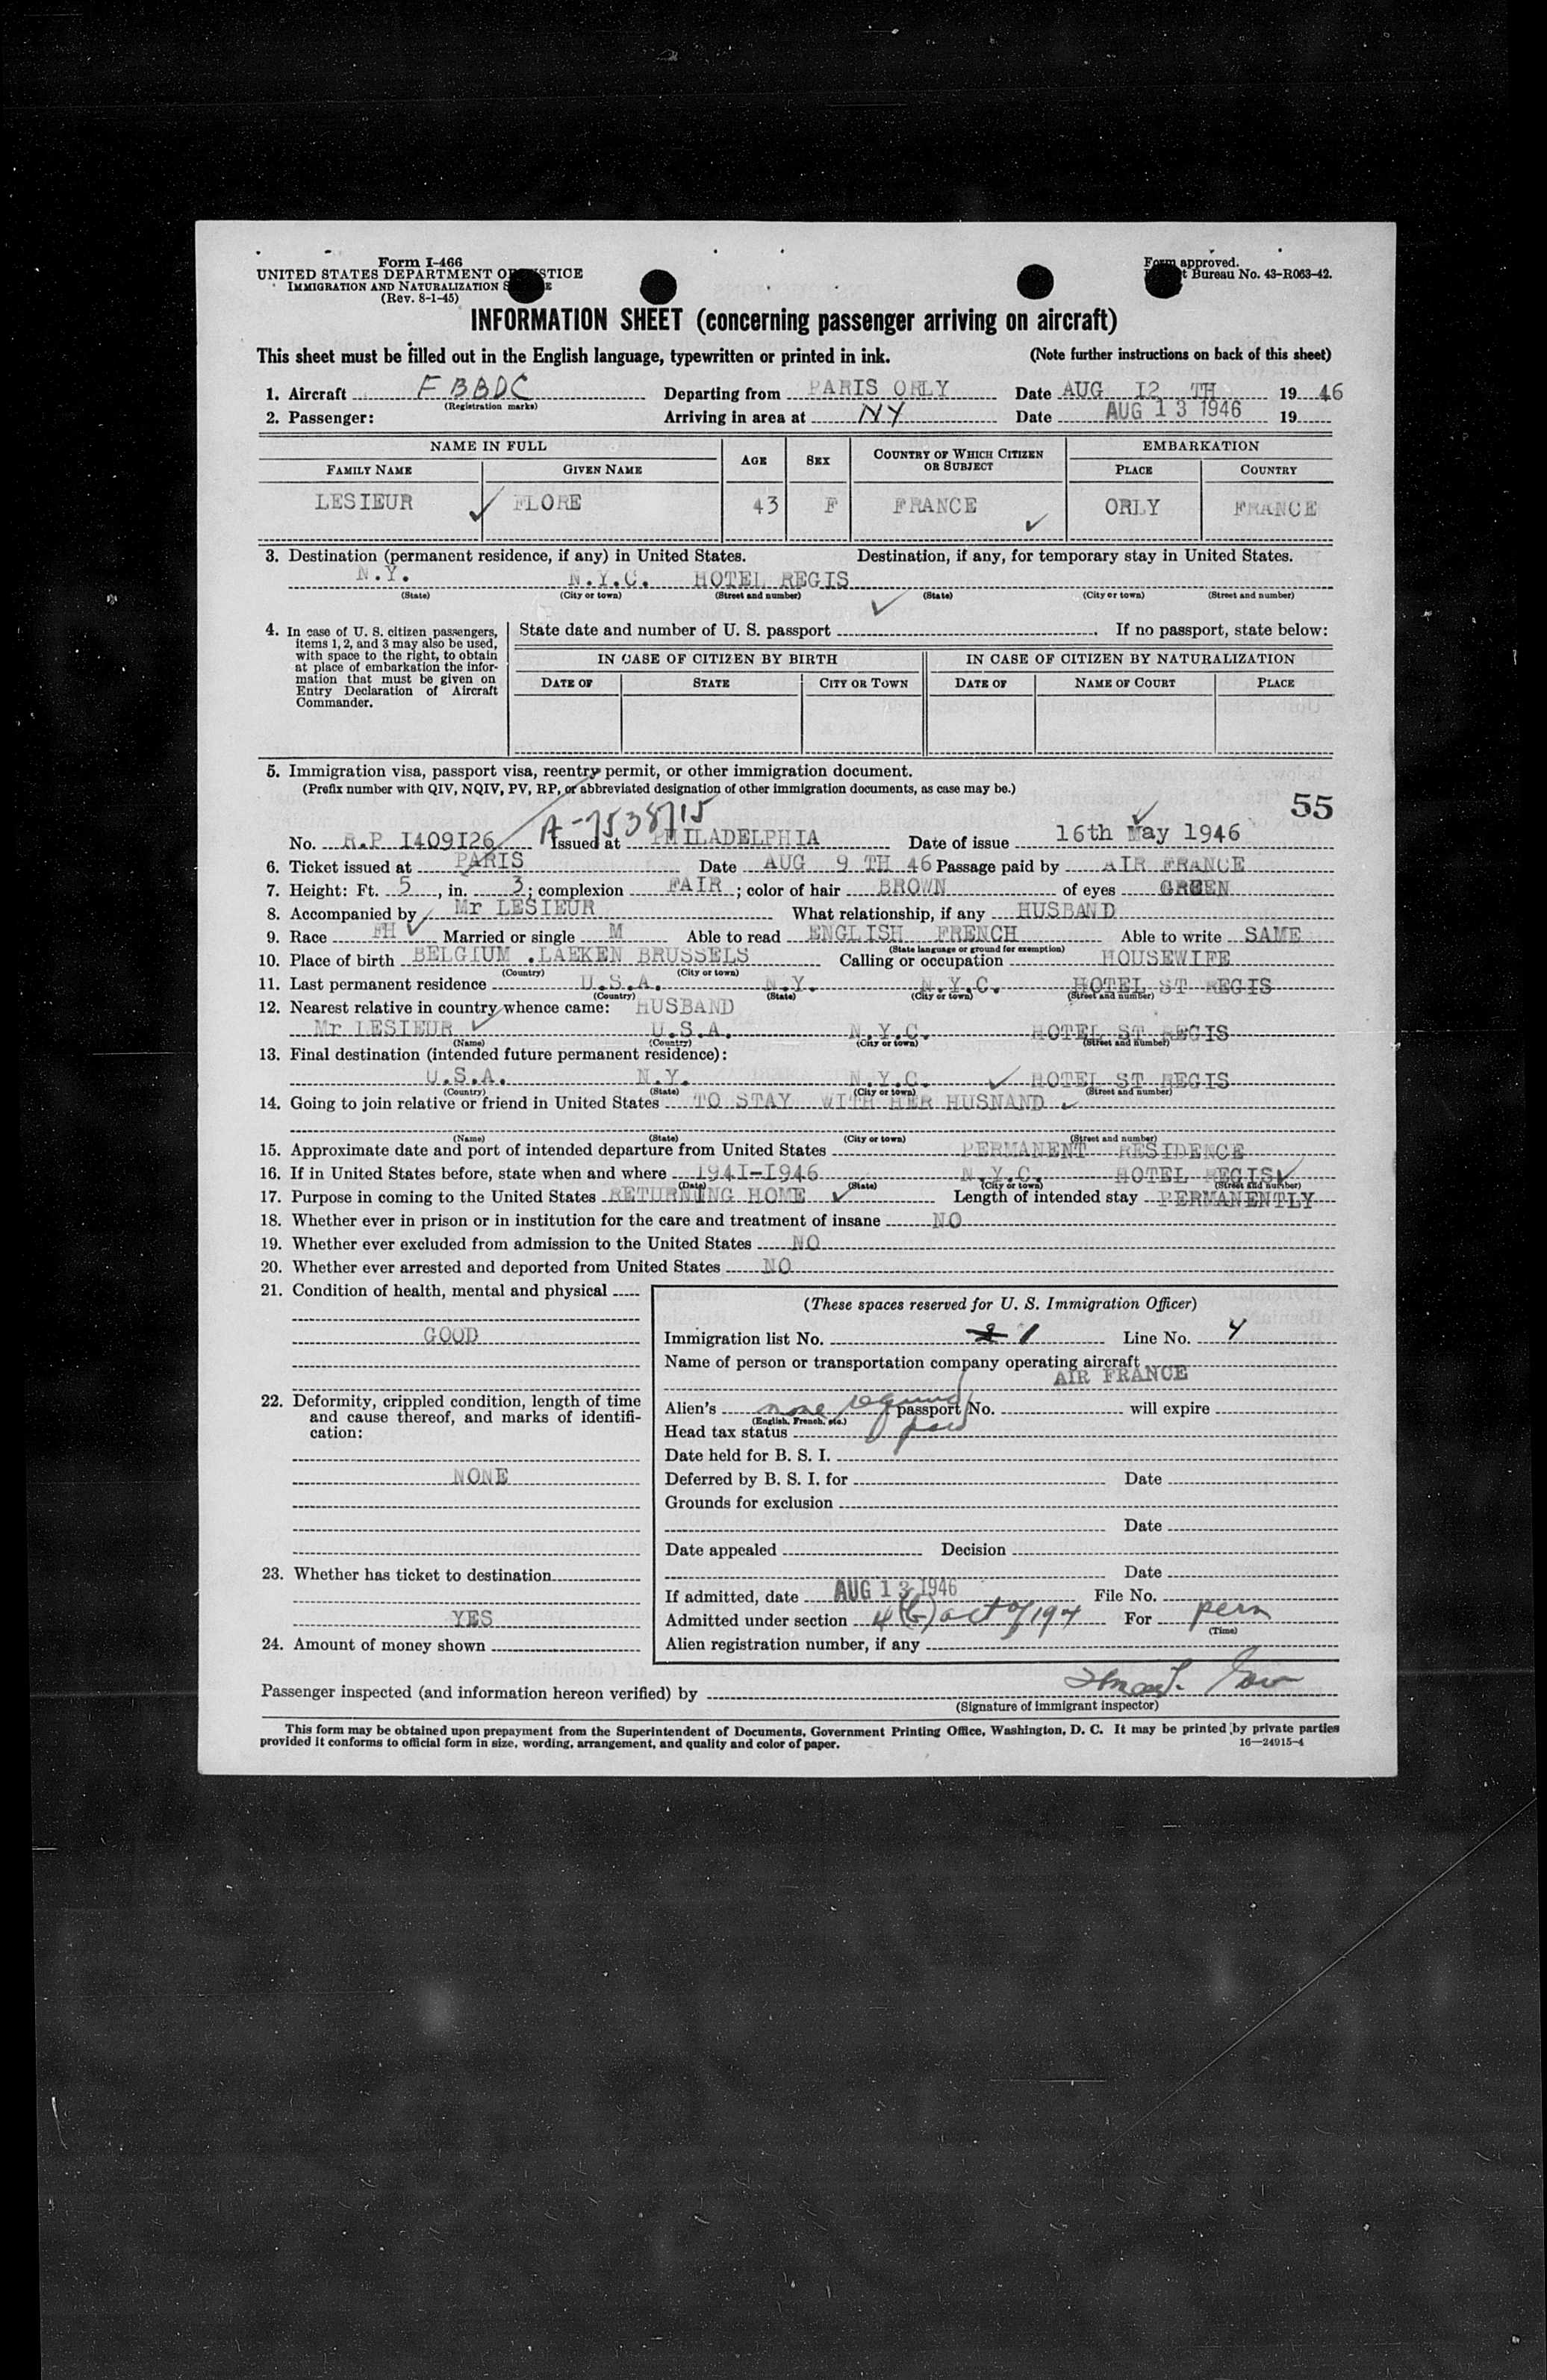 Form I-466
UNITED STATES DEPARTMENT OF JUSTICE
IMMIGRATION AND NATURALIZATION S E
(Rev. 8-1-45)
Form approved.
t Bureau No. 43-R063-42.
INFORMATION SHEET (concerning passenger arriving on aircraft)
This sheet must be filled out in the English language, typewritten or printed in ink. (Note further instructions on back of this sheet)
1. Aircraft F BBDC Departing from PARIS ORLY Date AUG 12 TH 19 46
(Registration marks)
2. Passenger: Arriving in area at NY Date AUG 13 1946 19
NAME IN FULL AGE SEX COUNTRY OF WHICH CITIZEN OR SUBJECT EMBARKATION
FAMILY NAME GIVEN NAME PLACE COUNTRY
LESIEUR FLORE 43 F FRANCE ORLY FRANCE
3. Destination (permanent residence, if any) in United States. Destination, if any, for temporary stay in United States.
N.Y. N.Y.C. HOTEL REGIS
(State) (City or town) (Street and number) (State) (City or town) (Street and number)
4. In case of U. S. citizen passengers,
items 1, 2, and 3 may also be used,
with space to the right, to obtain
at place of embarkation the infor-
mation that must be given on
Entry Declaration of Aircraft
Commander.
State date and number of U. S. passport . If no passport, state below:
IN CASE OF CITIZEN BY BIRTH IN CASE OF CITIZEN BY NATURALIZATION
DATE OF STATE CITY OR TOWN DATE OF NAME OF COURT PLACE
5. Immigration visa, passport visa, reentry permit, or other immigration document.
(Prefix number with QIV, NQIV, PV, RP, or abbreviated designation of other immigration documents, as case may be.)
55
A-7538715
No. R.P 1409126 Issued at PHILADELPHIA Date of issue 16th May 1946
6. Ticket issued at PARIS Date AUG 9 TH 46 Passage paid by AIR FRANCE
7. Height: Ft. 5, in. 3; complexion FAIR; color of hair BROWN of eyes GREEN
8. Accompanied by Mr LESIEUR What relationship, if any HUSBAND
9. Race FH Married or single M Able to read ENGLISH FRENCH Able to write SAME
(State language or ground for exemption)
10. Place of birth BELGIUM .LAEKEN BRUSSELS Calling or occupation HOUSEWIFE
(Country) (City or town)
11. Last permanent residence U.S.A. N.Y. N.Y.C. HOTEL ST REGIS
(Country) (State) (City or town) (Street and number)
12. Nearest relative in country whence came: HUSBAND
Mr LESIEUR U.S.A. N.Y.C. HOTEL ST REGIS
(Name) (Country) (City or town) (Street and number)
13. Final destination (intended future permanent residence):
U.S.A. N.Y. N.Y.C. HOTEL ST REGIS
(Country) (State) (City or town) (Street and number)
14. Going to join relative or friend in United States TO STAY WITH HER HUSNAND
(Name) (State) (City or town) (Street and number)
15. Approximate date and port of intended departure from United States PERMANENT RESIDENCE
16. If in United States before, state when and where 1941-1946 N.Y.C. HOTEL REGIS
(Date) (State) (City or town) (Street and number)
17. Purpose in coming to the United States RETURNING HOME Length of intended stay PERMANENTLY
18. Whether ever in prison or in institution for the care and treatment of insane NO
19. Whether ever excluded from admission to the United States NO
20. Whether ever arrested and deported from United States NO
21. Condition of health, mental and physical
GOOD
22. Deformity, crippled condition, length of time
and cause thereof, and marks of identifi-
cation:
NONE
23. Whether has ticket to destination
YES
24. Amount of money shown
(These spaces reserved for U. S. Immigration Officer)
Immigration list No. 1 Line No. 4
Name of person or transportation company operating aircraft
AIR FRANCE
Alien's none required passport No. will expire
(English, French, etc.)
Head tax status paid
Date held for B. S. I.
Deferred by B. S. I. for Date
Grounds for exclusion
Date
Date appealed Decision
Date
If admitted, date AUG 13 1946 File No.
Admitted under section 4(b) act of 194 For perm
(Time)
Alien registration number, if any
Passenger inspected (and information hereon verified) by
(Signature of immigrant inspector)
This form may be obtained upon prepayment from the Superintendent of Documents, Government Printing Office, Washington, D. C. It may be printed by private parties
provided it conforms to official form in size, wording, arrangement, and quality and color of paper. 16—24915-4